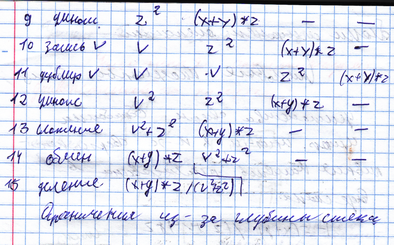 9 умнож. z² (x+y)*z — —
10 запись v v z² (x+y)*z —
11 дублир v v v z² (x+y)*z
12 умнож v² z² (x+y)*z —
13 сложение v²+z² (x+y)*z — —
14 обмен (x+y)*z v²+z² — —
15 деление (x+y)*z/(v²+z²)
Ограничения из-за глубины стека